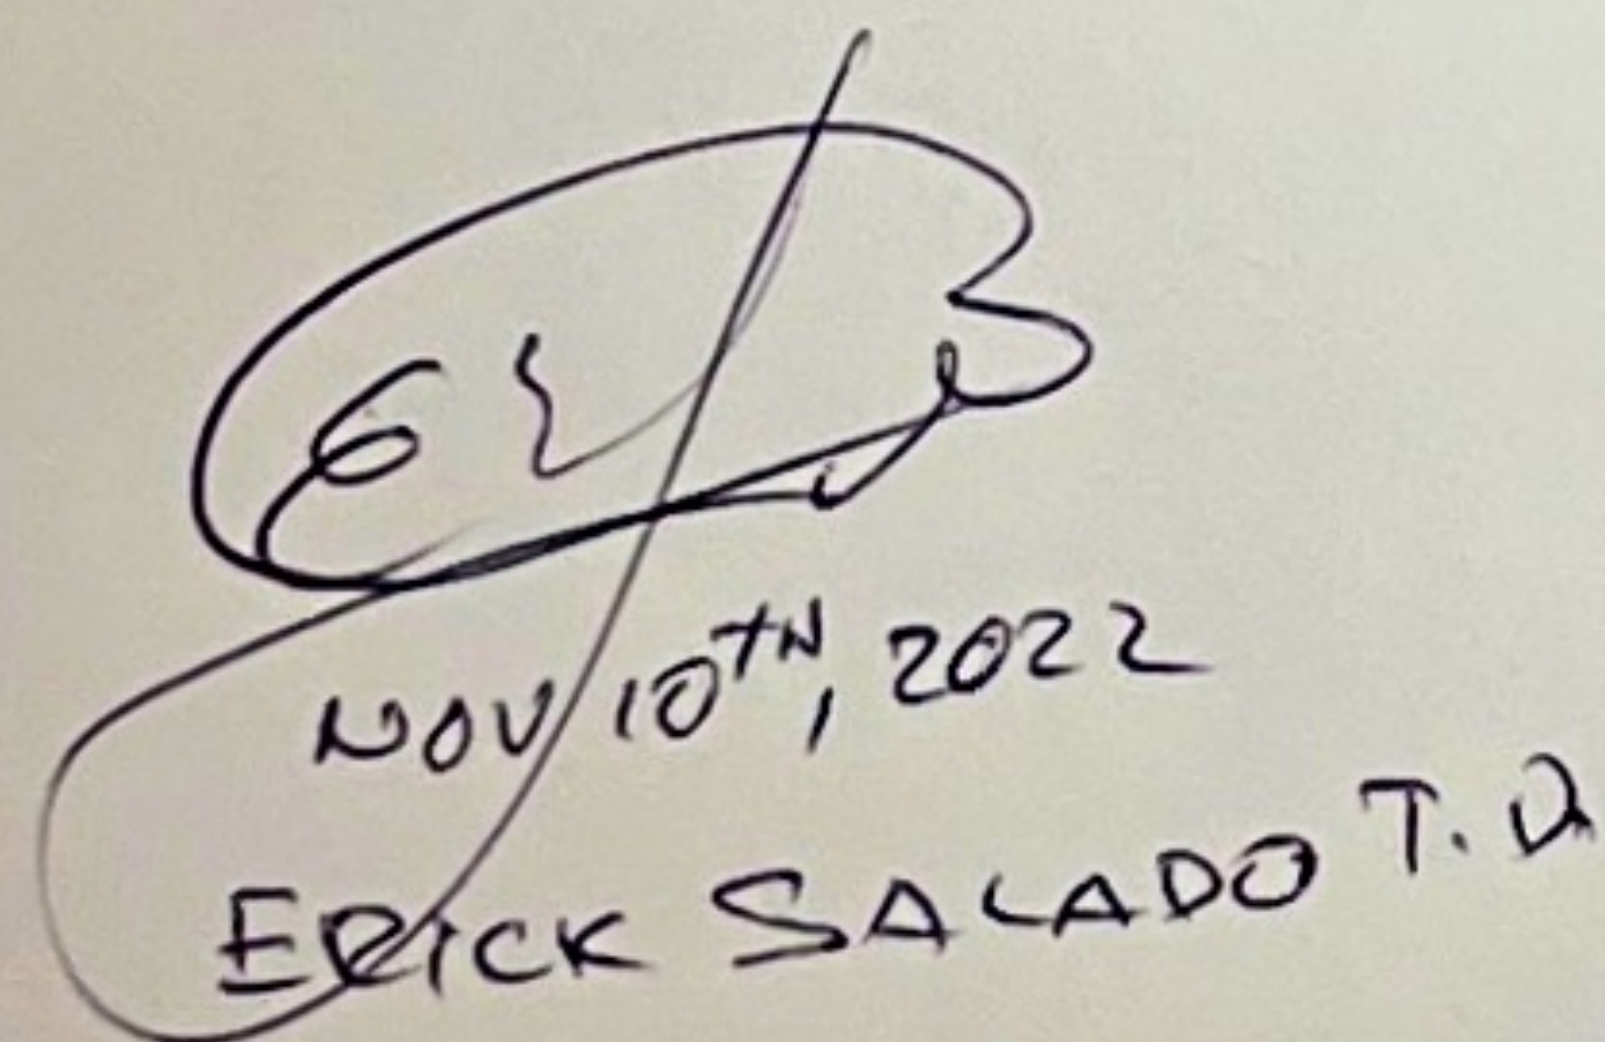 NOV 10TH, 2022
ERICK SALADO T. D.